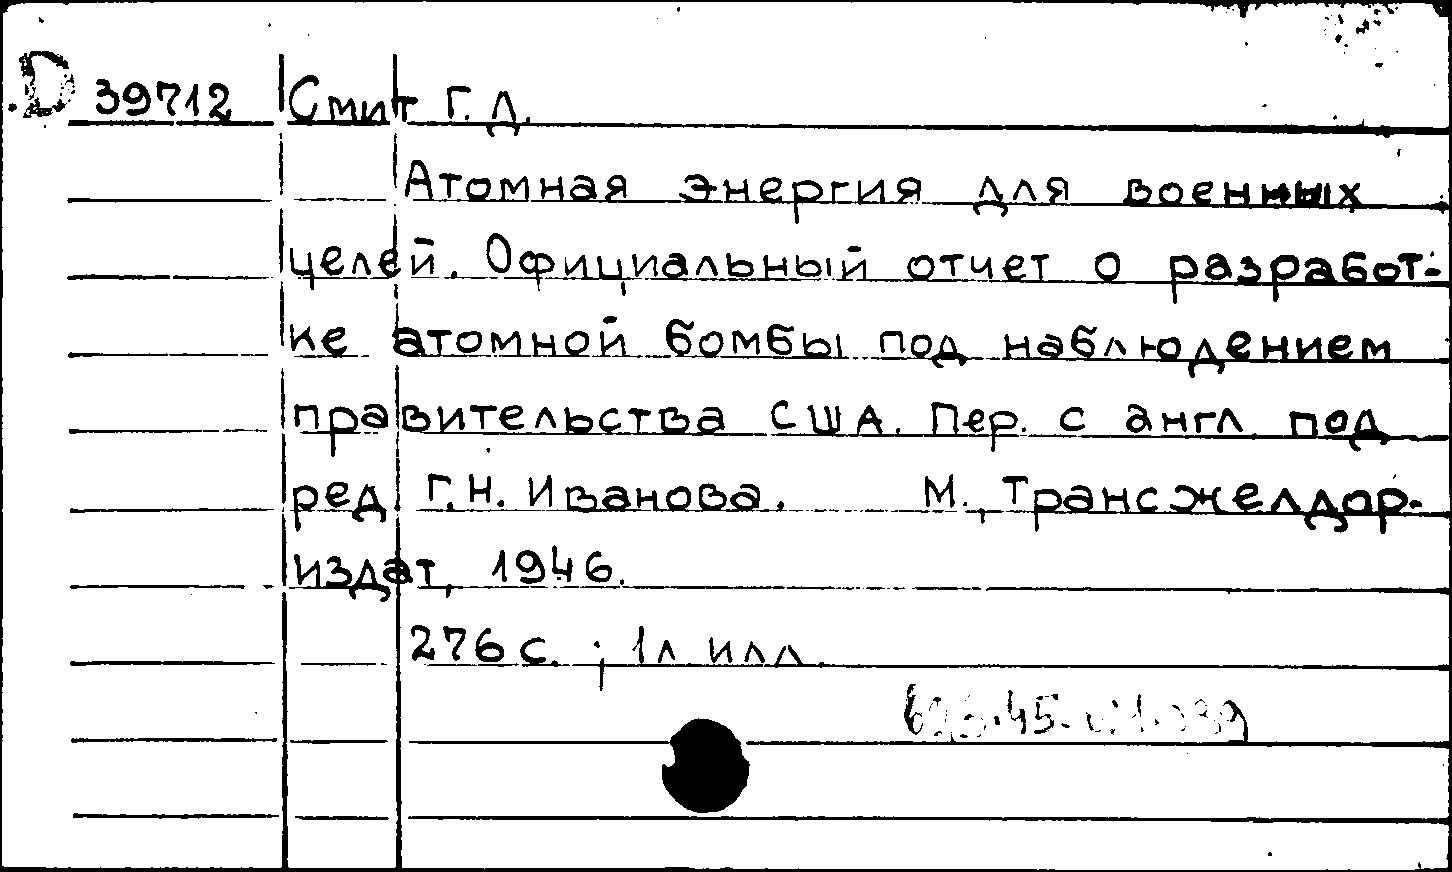 D 39712 Смит Г. Д.
Атомная энергия для военных
целей. Официальный отчет о разработ-
ке атомной бомбы под наблюдением
правительства США. Пер. с англ. под
ред. Г.Н. Иванова. М., Трансжелдор-
издат, 1946.
276 с. ; 1л илл.